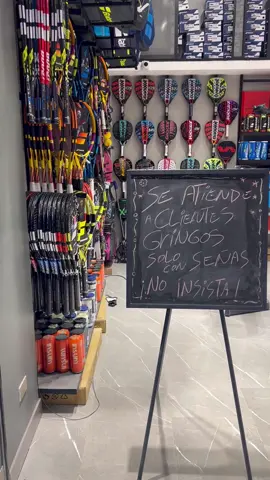 SE ATIENDE
A CLIENTES
GRINGOS
SOLO
CON SEÑAS
¡NO INSISTA!